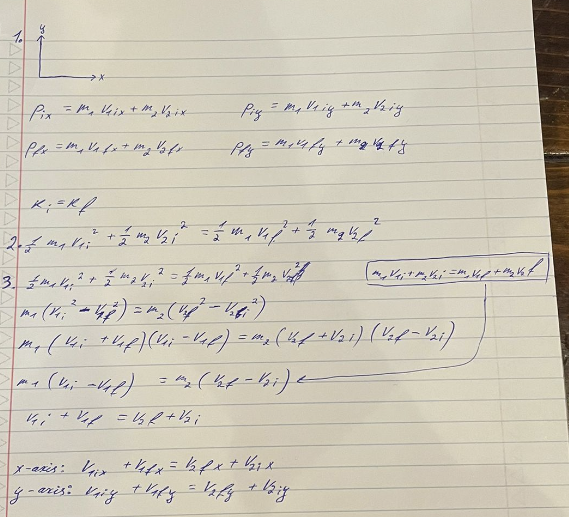 1.
y
x
p_ix = m₁ v₁ix + m₂ v₂ix    p_iy = m₁ v₁iy + m₂ v₂iy
p_fx = m₁ v₁fx + m₂ v₂fx    p_fy = m₁ v₁fy + m₂ v₂fy
K_i = K_f
2. 1/2 m₁ v₁i² + 1/2 m₂ v₂i² = 1/2 m₁ v₁f² + 1/2 m₂ v₂f²
3. 1/2 m₁ v₁i² + 1/2 m₂ v₂i² = 1/2 m₁ v₁f² + 1/2 m₂ v₂f²    m₁ v₁i + m₂ v₂i = m₁ v₁f + m₂ v₂f
m₁ (v₁i² - v₁f²) = m₂ (v₂f² - v₂i²)
m₁ (v₁i + v₁f)(v₁i - v₁f) = m₂ (v₂f + v₂i)(v₂f - v₂i)
m₁ (v₁i - v₁f) = m₂ (v₂f - v₂i)
v₁i + v₁f = v₂f + v₂i
x-axis: v₁ix + v₁fx = v₂fx + v₂ix
y-axis: v₁iy + v₁fy = v₂fy + v₂iy